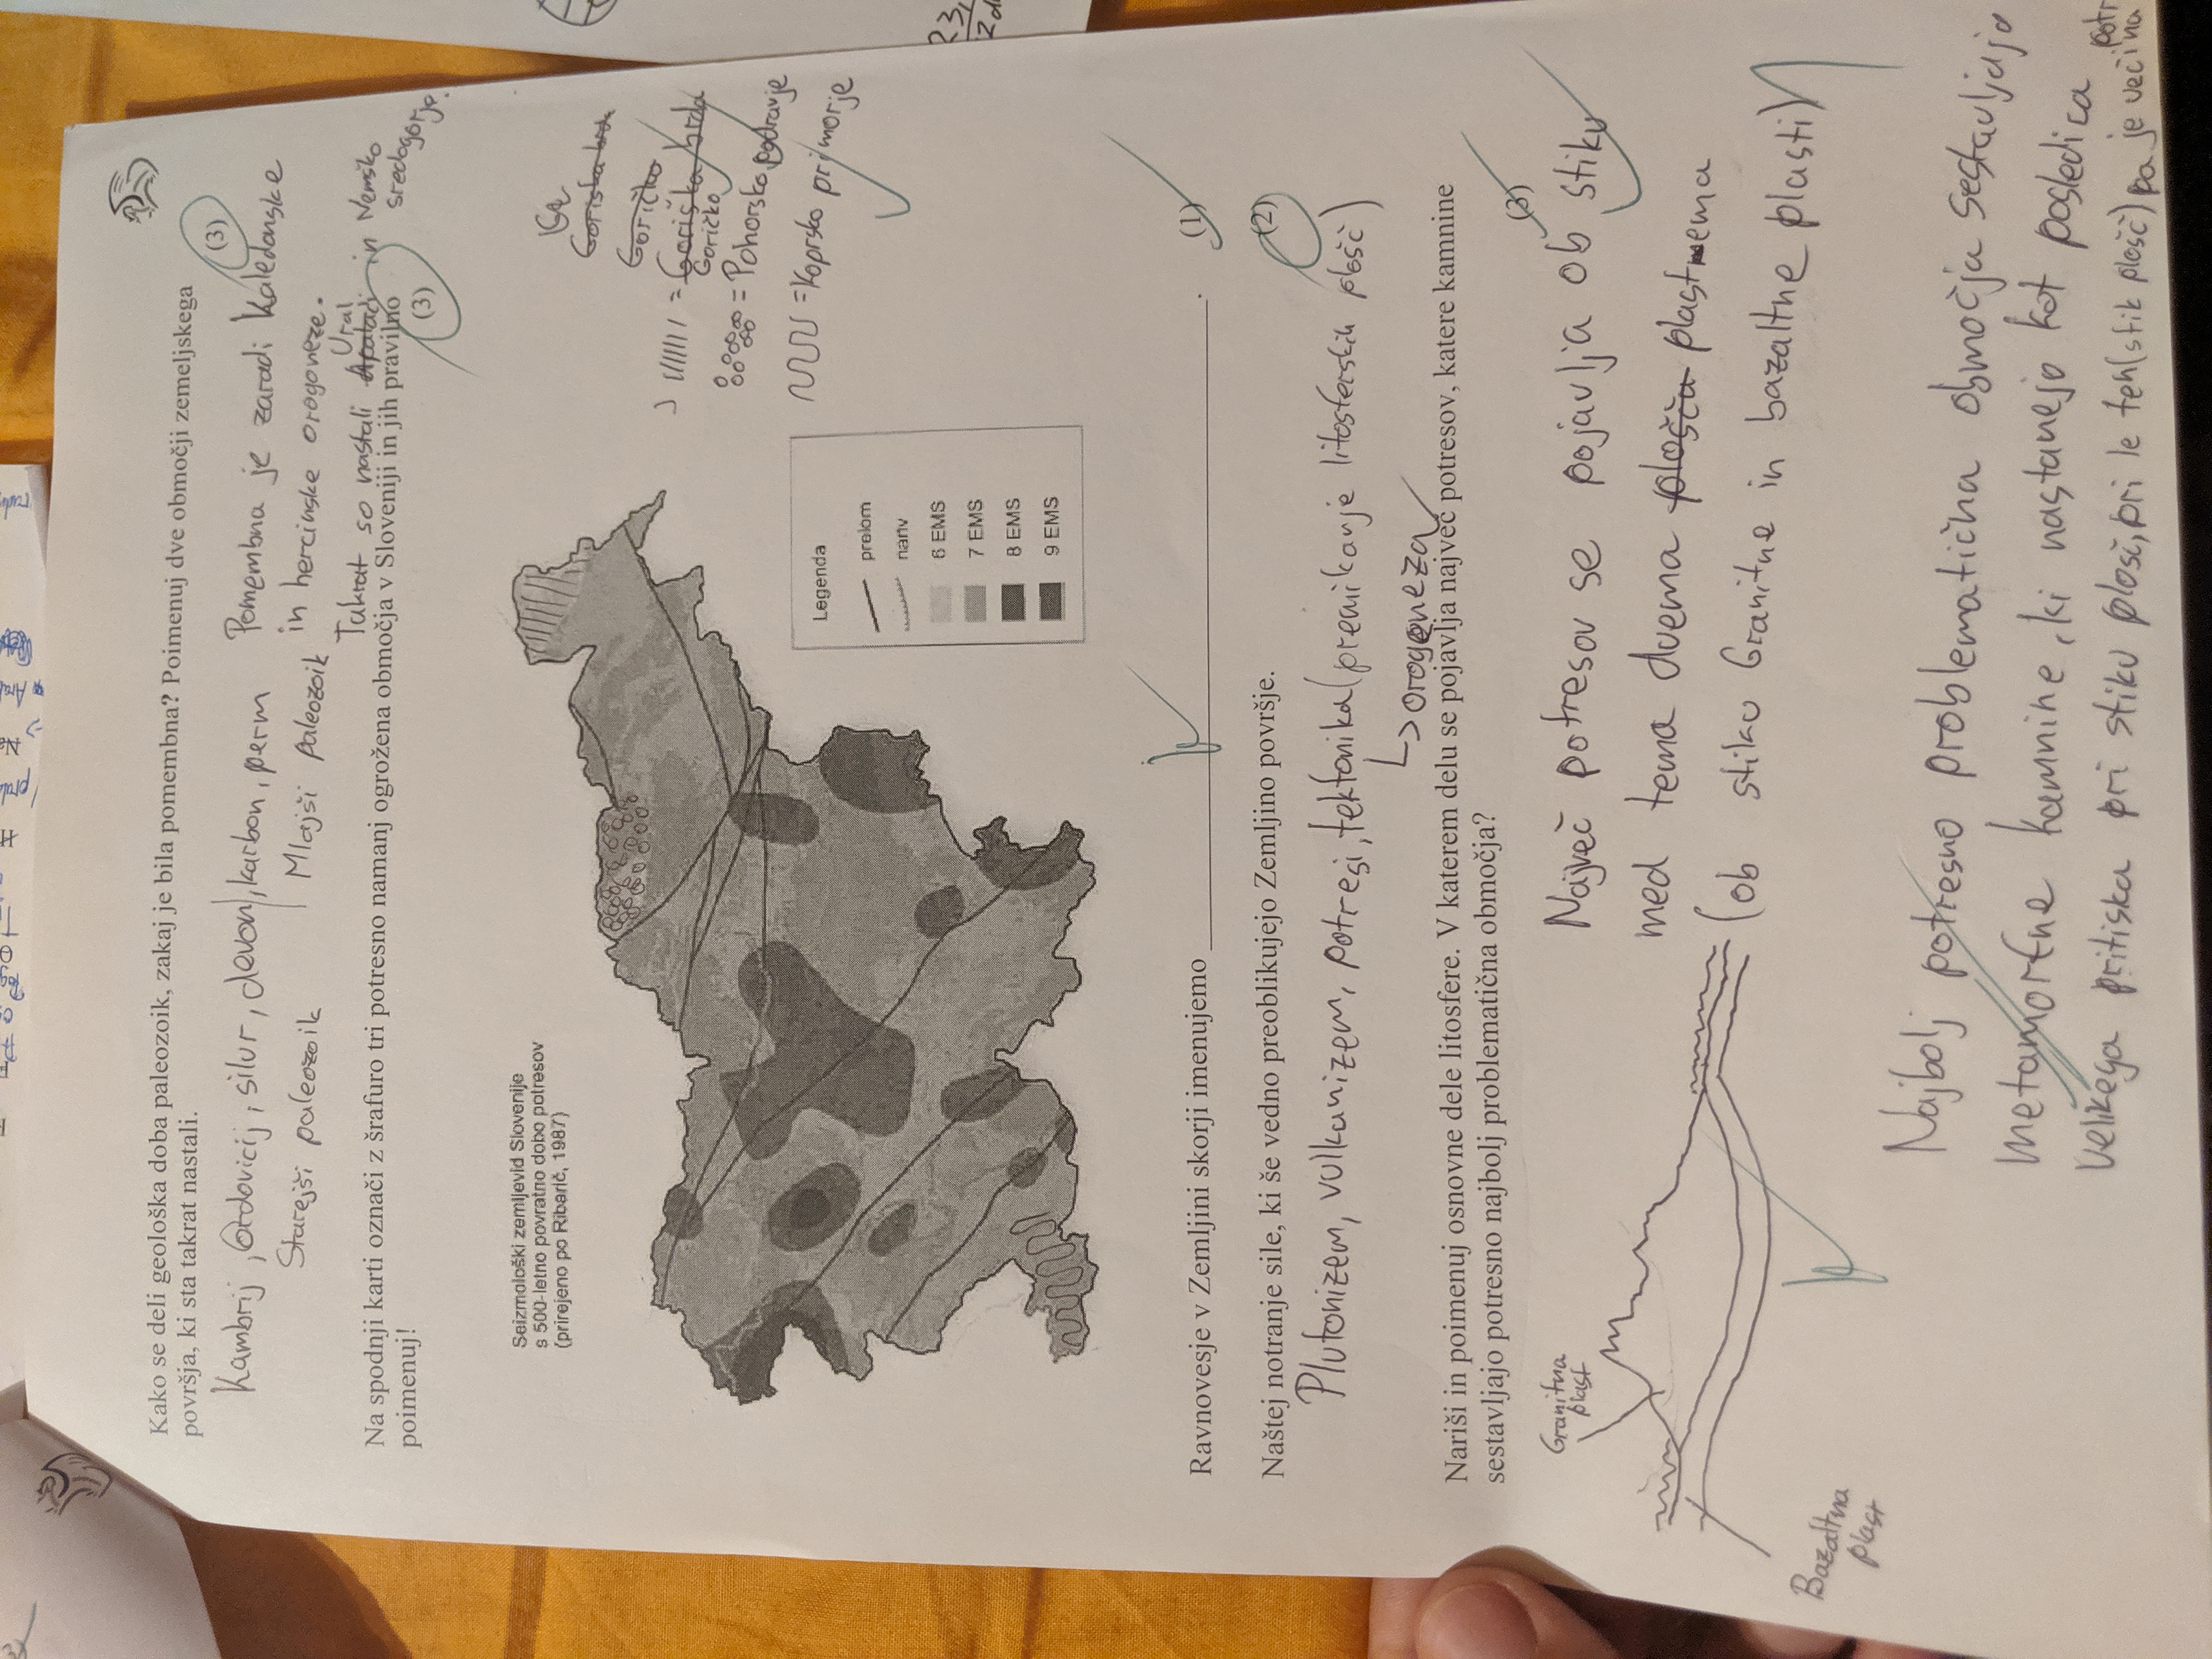 Kako se deli geološka doba paleozoik, zakaj je bila pomembna? Poimenuj dve območji zemeljskega
površja, ki sta takrat nastali.
(3)
Kambrij, Ordovicij, silur, devon, karbon, perm
Starejši paleozoik
Mlajši paleozoik
Pomembna je zaradi kaledonske
in hercinske orogoneze.
Ural
Takrat so nastali Apalači in Nemško
sredogorje.
Na spodnji karti označi z šrafuro tri potresno namanj ogrožena območja v Sloveniji in jih pravilno
poimenuj!
(3)
Seizmološki zemljevid Slovenije
s 500-letno povratno dobo potresov
(prirejeno po Ribarič, 1987)
Goriška brda
Goričko
= Goriška brda
Goričko
= Pohorsko podravje
= Koprsko primorje
Legenda
prelom
nariv
6 EMS
7 EMS
8 EMS
9 EMS
Ravnovesje v Zemljini skorji imenujemo ______.
(1)
Naštej notranje sile, ki še vedno preoblikujejo Zemljino površje.
(2)
Plutonizem, vulkanizem, potresi, tektonika (premikanje litosferskih plošč)
↳ orogeneza
Nariši in poimenuj osnovne dele litosfere. V katerem delu se pojavlja največ potresov, katere kamnine
sestavljajo potresno najbolj problematična območja?
(3)
Granitna
plast
Bazaltna
plast
Največ potresov se pojavlja ob stiku
med tema dvema plošča plastmema
(ob stiku Granitne in bazaltne plasti)
Najbolj potresno problematična območja sestavljajo
metamorfne kamnine, ki nastanejo kot posledica
velikega pritiska pri stiku plošč, pri le teh (stik plošč) pa je večina